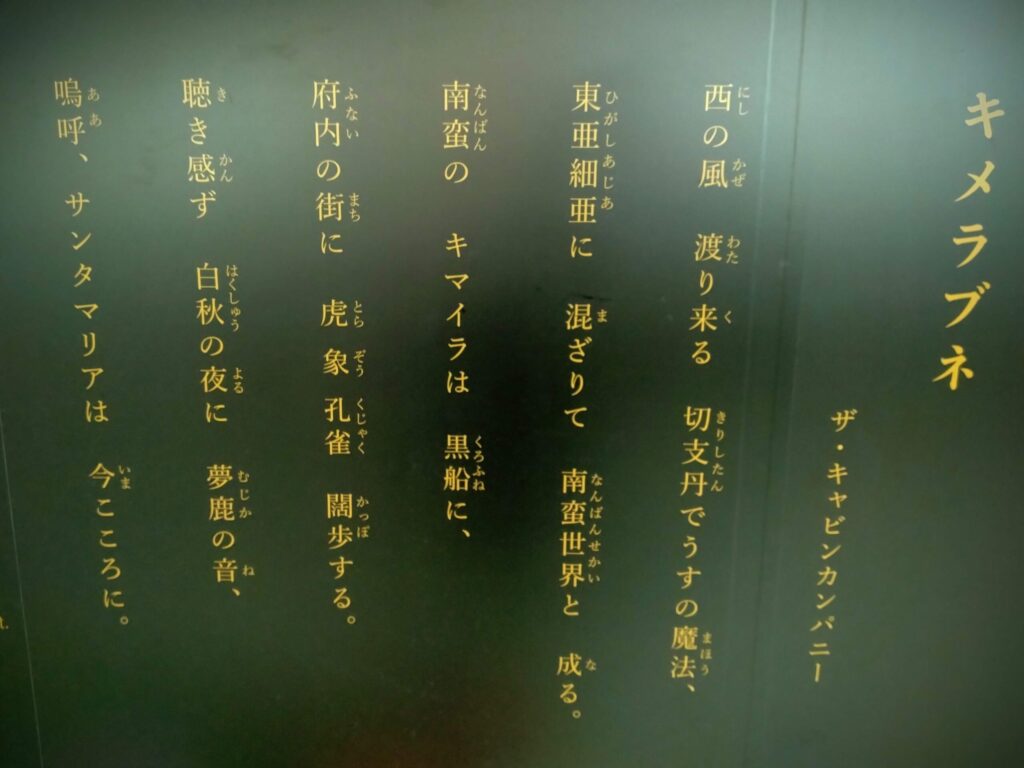 キメラブネ
ザ・キャビンカンパニー
西の風　渡り来る　切支丹でうすの魔法、
東亜細亜に　混ざりて　南蛮世界と　成る。
南蛮の　キマイラは　黒船に、
府内の街に　虎　象　孔雀　闊歩する。
聴き感ず　白秋の夜に　夢鹿の音、
嗚呼、サンタマリアは　今こころに。